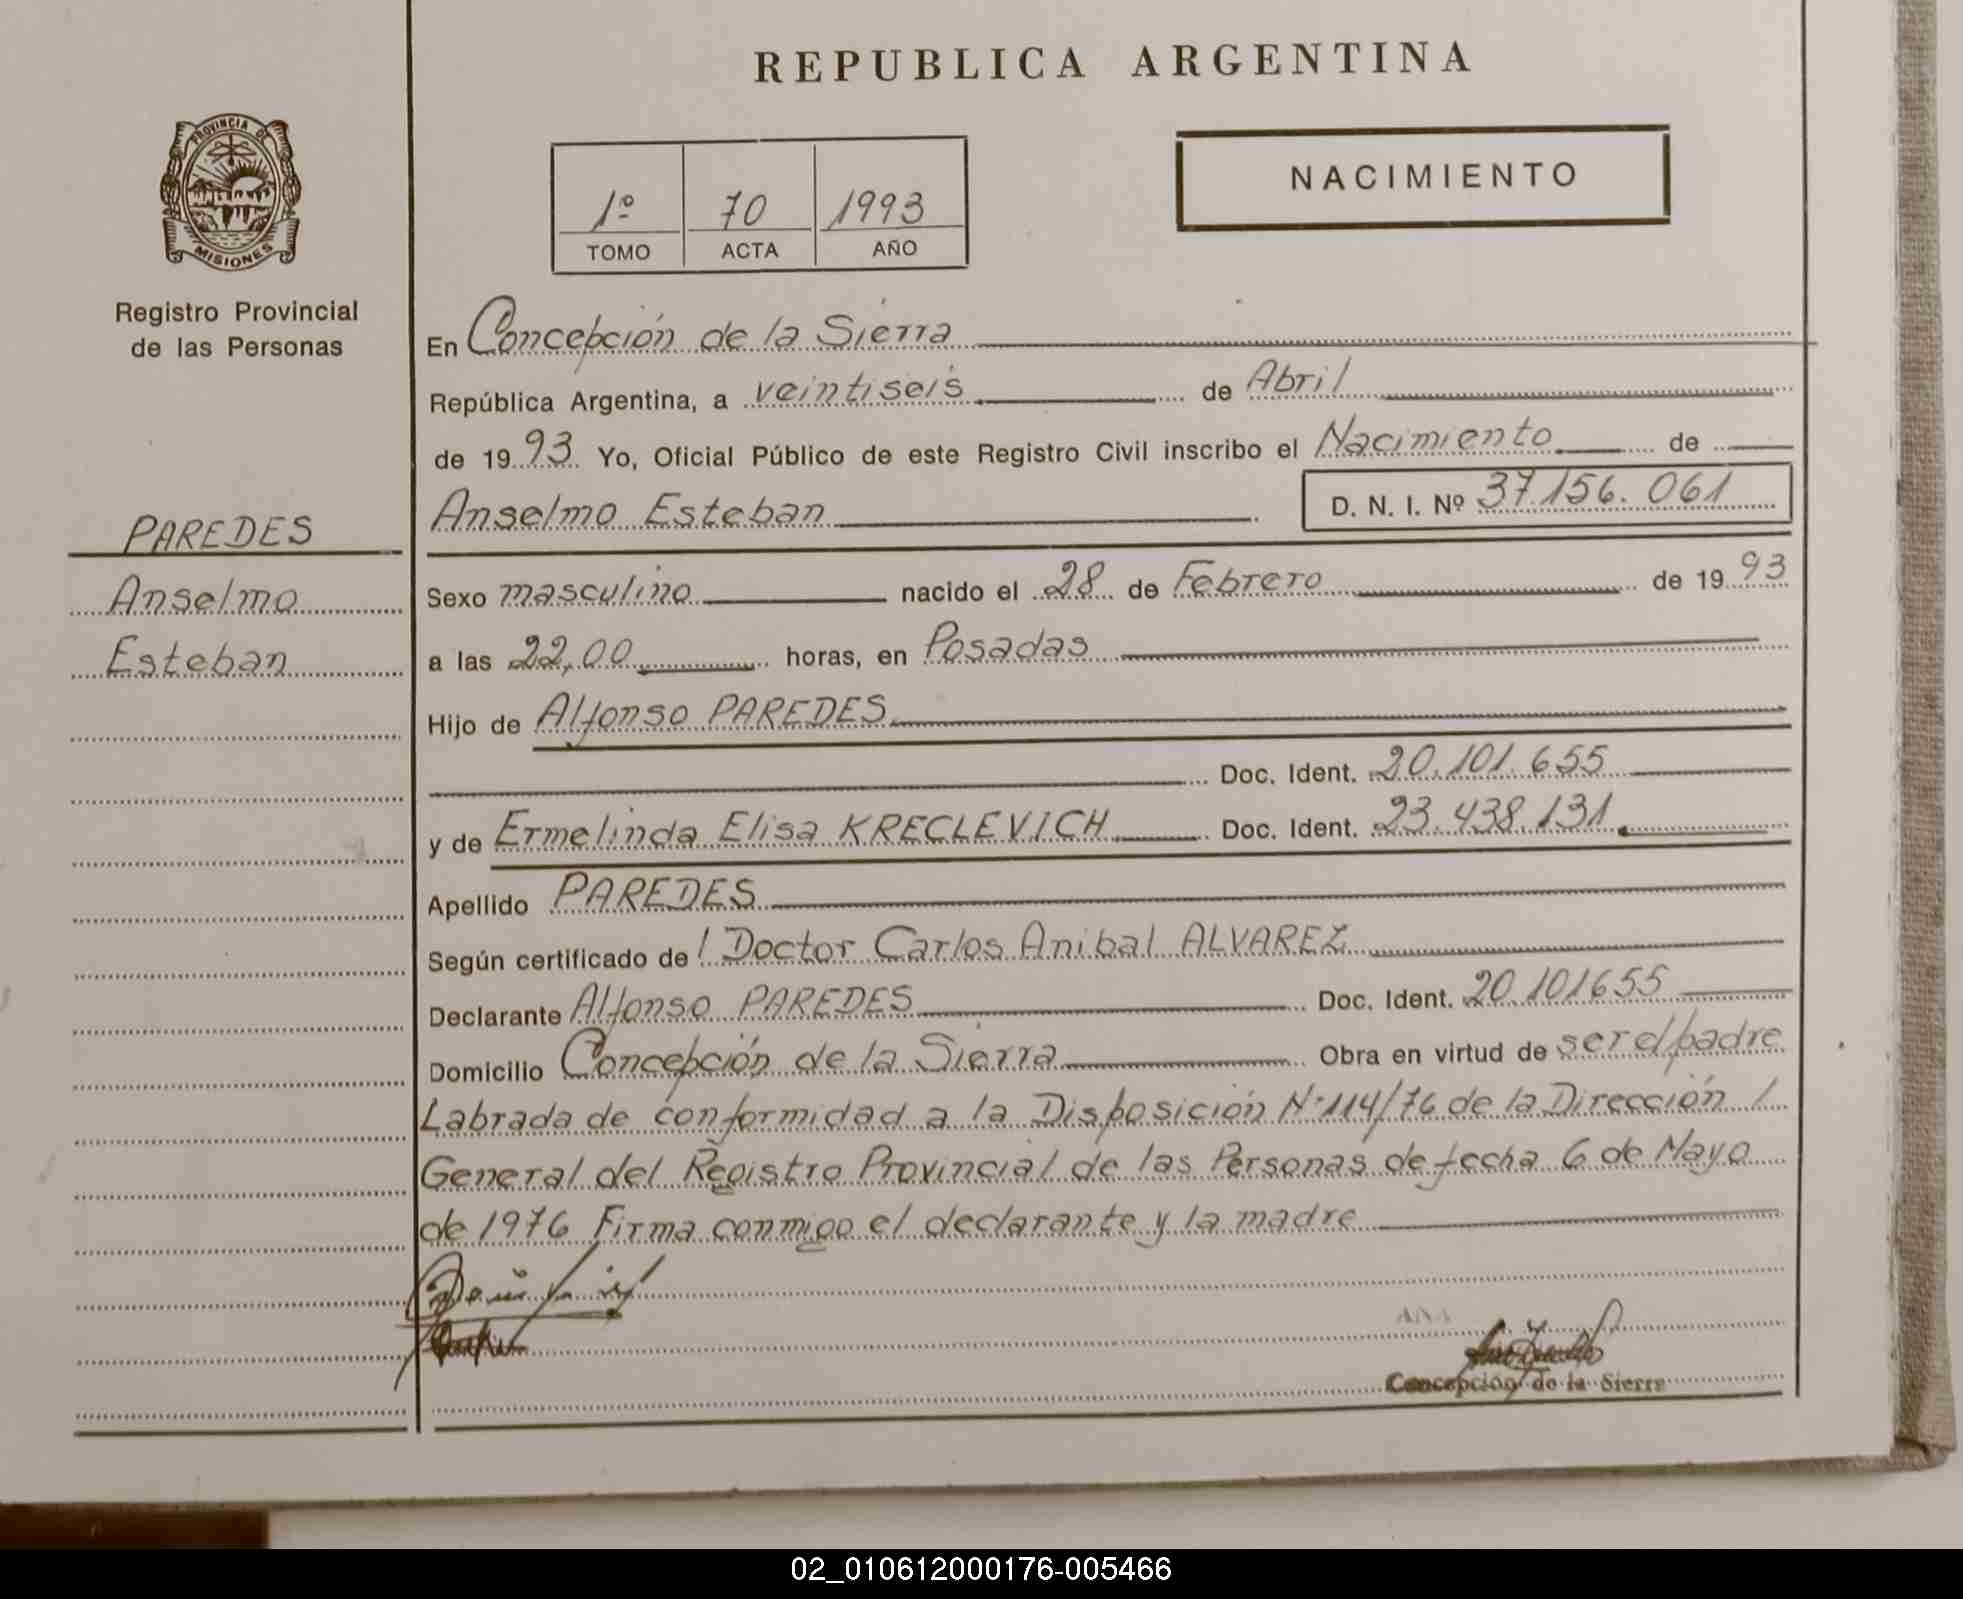 REPUBLICA ARGENTINA
PROVINCIA DE
MISIONES
Registro Provincial
de las Personas
1º 70 1993
TOMO ACTA AÑO
NACIMIENTO
En Concepción de la Sierra
República Argentina, a veintiseis de Abril
de 1993 Yo, Oficial Público de este Registro Civil inscribo el Nacimiento de
Anselmo Esteban D. N. I. Nº 37.156.061
PAREDES
Anselmo
Esteban
Sexo masculino nacido el 28 de Febrero de 1993
a las 22,00 horas, en Posadas
Hijo de Alfonso PAREDES
Doc. Ident. 20.101.655
y de Ermelinda Elisa KRECLEVICH Doc. Ident. 23.438.131
Apellido PAREDES
Según certificado de / Doctor Carlos Anibal ALVAREZ
Declarante Alfonso PAREDES Doc. Ident. 20.101655
Domicilio Concepción de la Sierra Obra en virtud de ser el padre
Labrada de conformidad a la Disposición Nº 114/76 de la Dirección /
General del Registro Provincial de las Personas de fecha 6 de Mayo
de 1976 Firma conmigo el declarante y la madre
Concepción de la Sierra
02_010612000176-005466